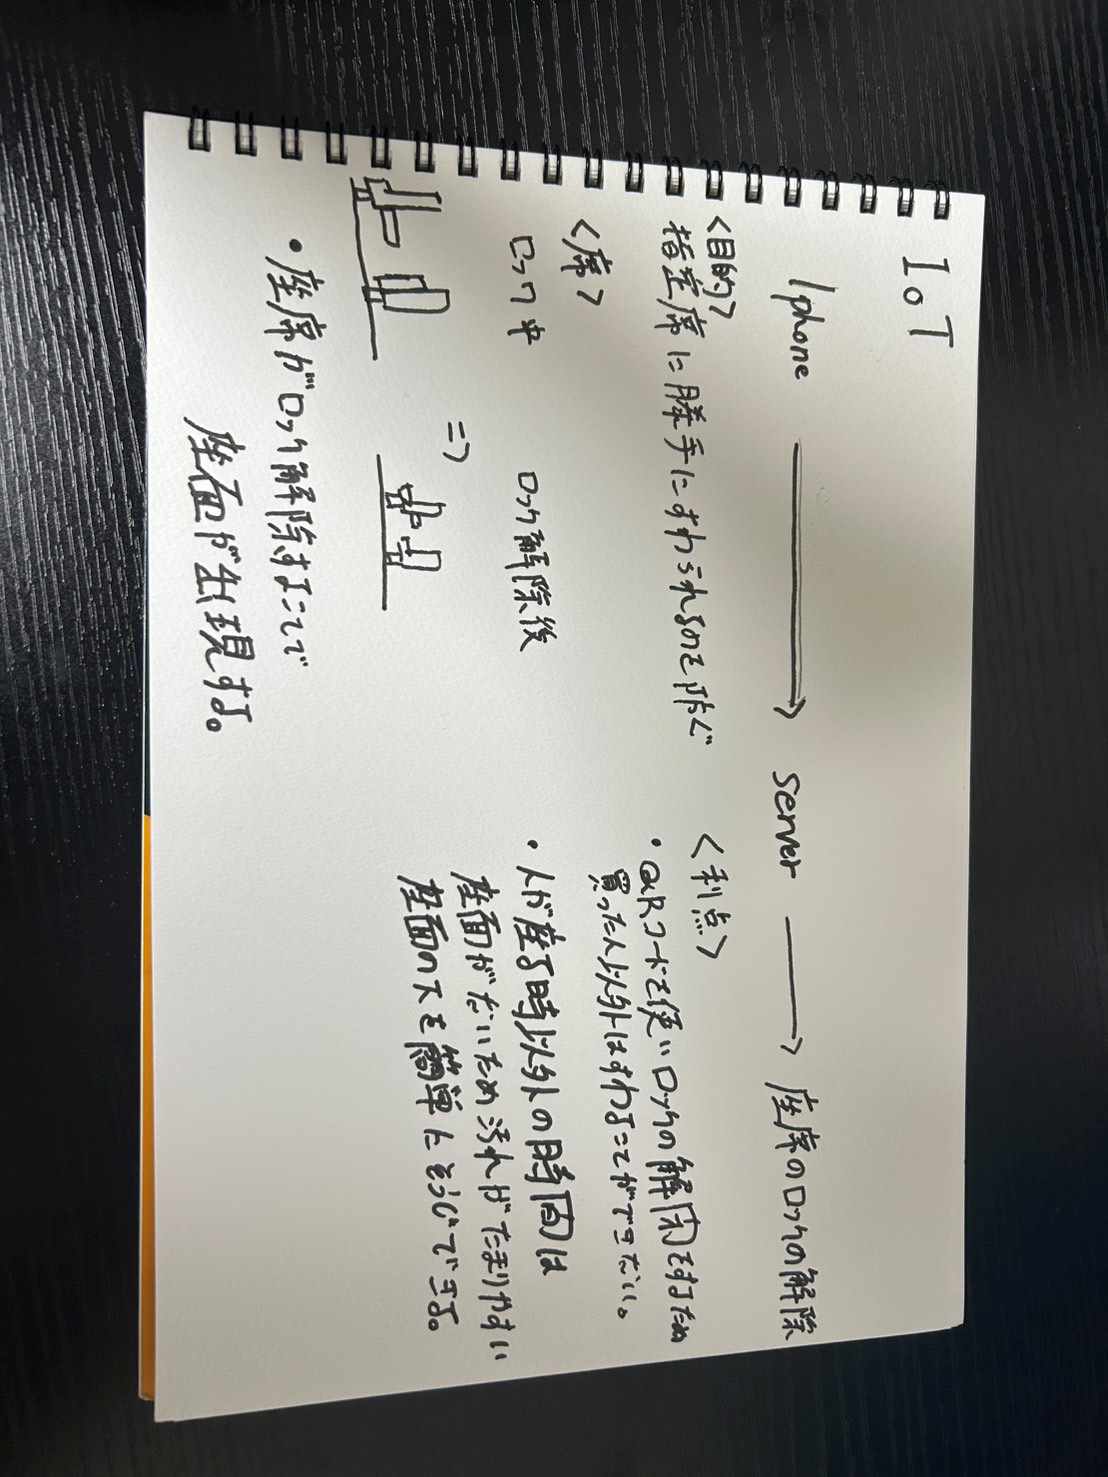 IoT
Iphone → server → 座席のロックの解除
<目的>
指定席に勝手にすわられるのを防ぐ
<席>
ロック中
ロック解除後
⇒
・座席がロック解除することで
座面が出現する。
<利点>
・QRコードを使いロックの解閉をするため
買った人以外はすわることができない。
・人が座る時以外の時間は
座面がないため汚れがたまりやすい
座面の下を簡単にそうじできる。